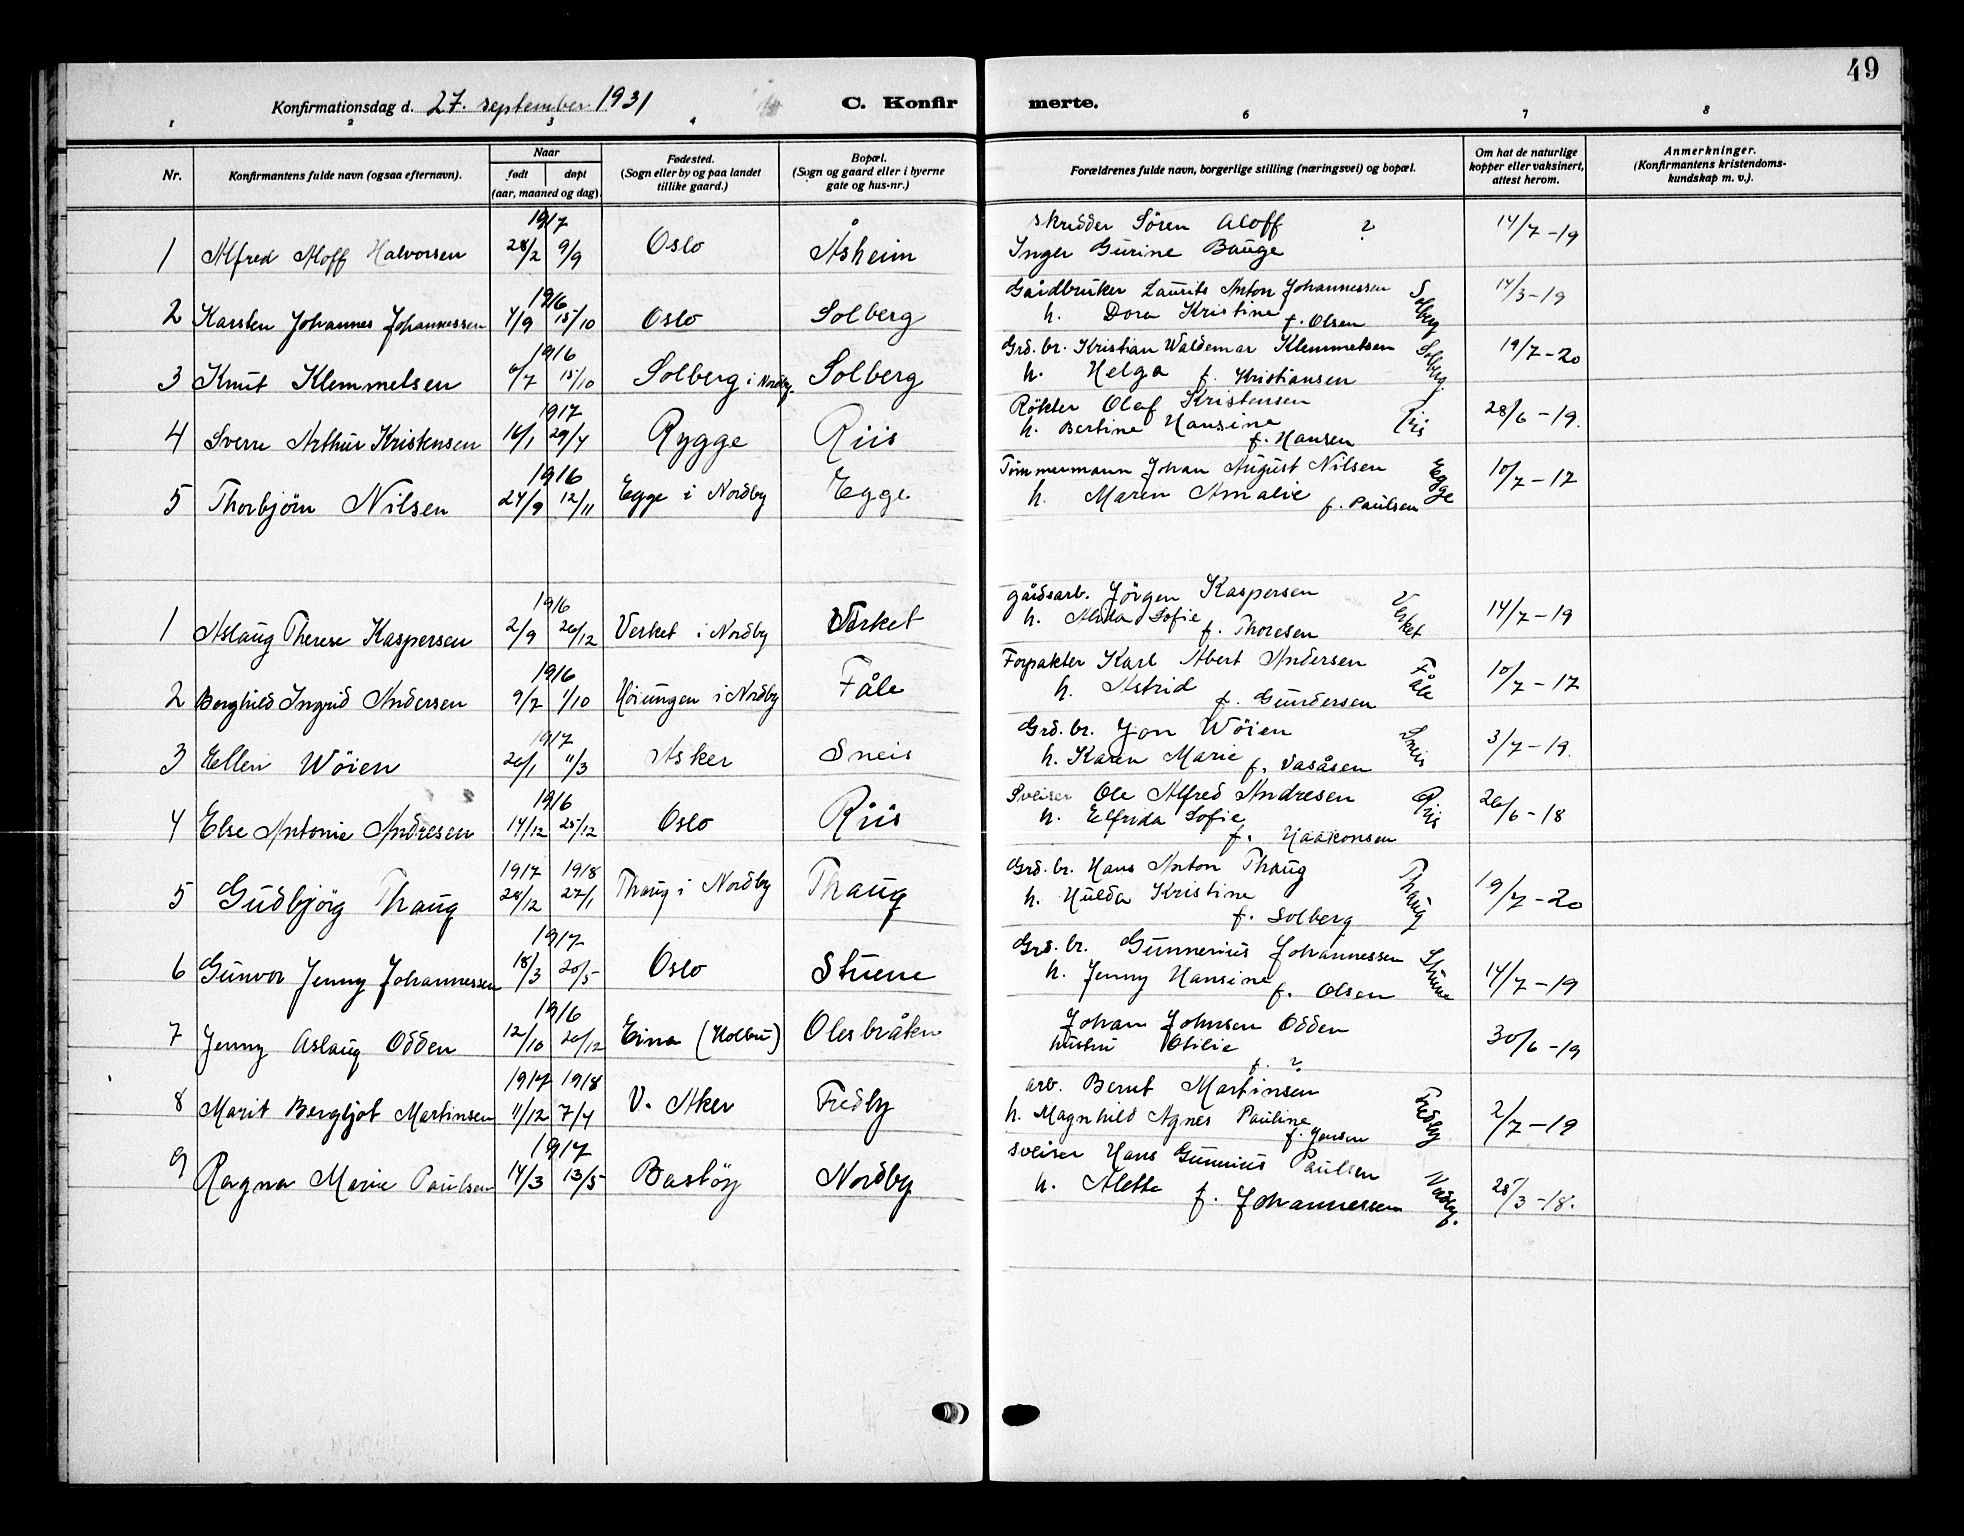 49
Konfirmationsdag d. 27. september 1931
C. Konfirmerte.
1 2 3 4 6 7 8
Nr.
Konfirmantens fulde navn (ogsaa efternavn).
Naar
født
døpt
(aar, maaned og dag).
Fødested.
(Sogn eller by og paa landet
tillike gaard.)
Bopæl.
(Sogn og gaard eller i byerne
gate og hus-nr.)
Forældrenes fulde navn, borgerlige stilling (næringsvei) og bopæl.
Om hat de naturlige
kopper eller vaksinert,
attest herom.
Anmerkninger.
(Konfirmantens kristendoms-
kundskap m. v.).
1917
skredder Sören Aloff ?
1 Alfred Aloff Halvorsen 28/2 9/9 Oslo Åsheim Inger Gurine Bauge 14/7-19
1916
Gårdbruker Laurits Anton Johannessen Solberg
2 Karsten Johannes Johannessen 4/9 15/10 Oslo Solberg h. Dora Kristine f. Olsen 14/3-19
1916
Grd. br. Kristian Waldemar Klemmetsen Solberg.
3 Knut Klemmetsen 6/7 15/10 Solberg i Nordby. Solberg h. Helga f. Kristiansen 19/7-20
1917
Røkter Olaf Kristensen Riis
4 Sverre Arthur Kristensen 16/1 29/4 Rygge Riis h. Bertine Hansine f. Hansen 28/6-19.
1916
Tømmermann Johan August Nilsen Egge
5 Thorbjørn Nilsen 24/9 12/11 Egge i Nordby Egge h. Maren Amalie f. Paulsen 10/7-17
1916
gårdsarb. Jörgen Kaspersen Verket
1 Aslaug Therese Kaspersen 2/9 26/12 Verket i Nordby Verket h. Alida Sofie f. Thoresen 14/7-19
1916
Forpakter Karl Albert Andersen Fåle
2 Borghild Ingrid Andersen 9/7 1/10 Höiungen i Nordby Fåle h. Astrid f. Gundersen 10/7-17
1917
Grd. br. Jon Wöien Sneis
3 Ellen Wöien 26/1 11/3 Asker Sneis h. Karen Marie f. Vasåsen 3/7-19.
1916
Sveiser Ole Alfred Andresen Riis
4 Else Antonie Andresen 14/12 25/12 Oslo Riis h. Elfrida Sofie f. Haakonsen 26/6-18
1917 1918
Grd. br. Hans Anton Thaug Thaug
5 Gudbjörg Thaug 28/12 27/1 Thaug i Nordby Thaug h. Hulda Kristine f. Solberg 19/7-20
1917
Grd. br. Gunnerius Johannessen Stuene
6 Gunvor Jenny Johannessen 18/3 20/5 Oslo Stuene h. Jenny Hansine f. Olsen 14/7-19
1916
Johan Johnsen Odden
7 Jenny Aslaug Odden 12/10 26/12 Eina (Kolbu) Olesbråten hustru Otilie f. ? 30/6-19
1917 1918
arb. Bernt Martinsen Fredby
8 Marit Bergljot Martinsen 11/12 7/4 V. Aker Fredby h. Magnhild Agnes Pauline f. Jensen 2/7-19
1917
sveiser Hans Gunerius Paulsen Nordby.
9 Ragna Marie Paulsen 14/3 13/5 Bastöy Nordby h. Alette f. Johannessen 25/3-18.